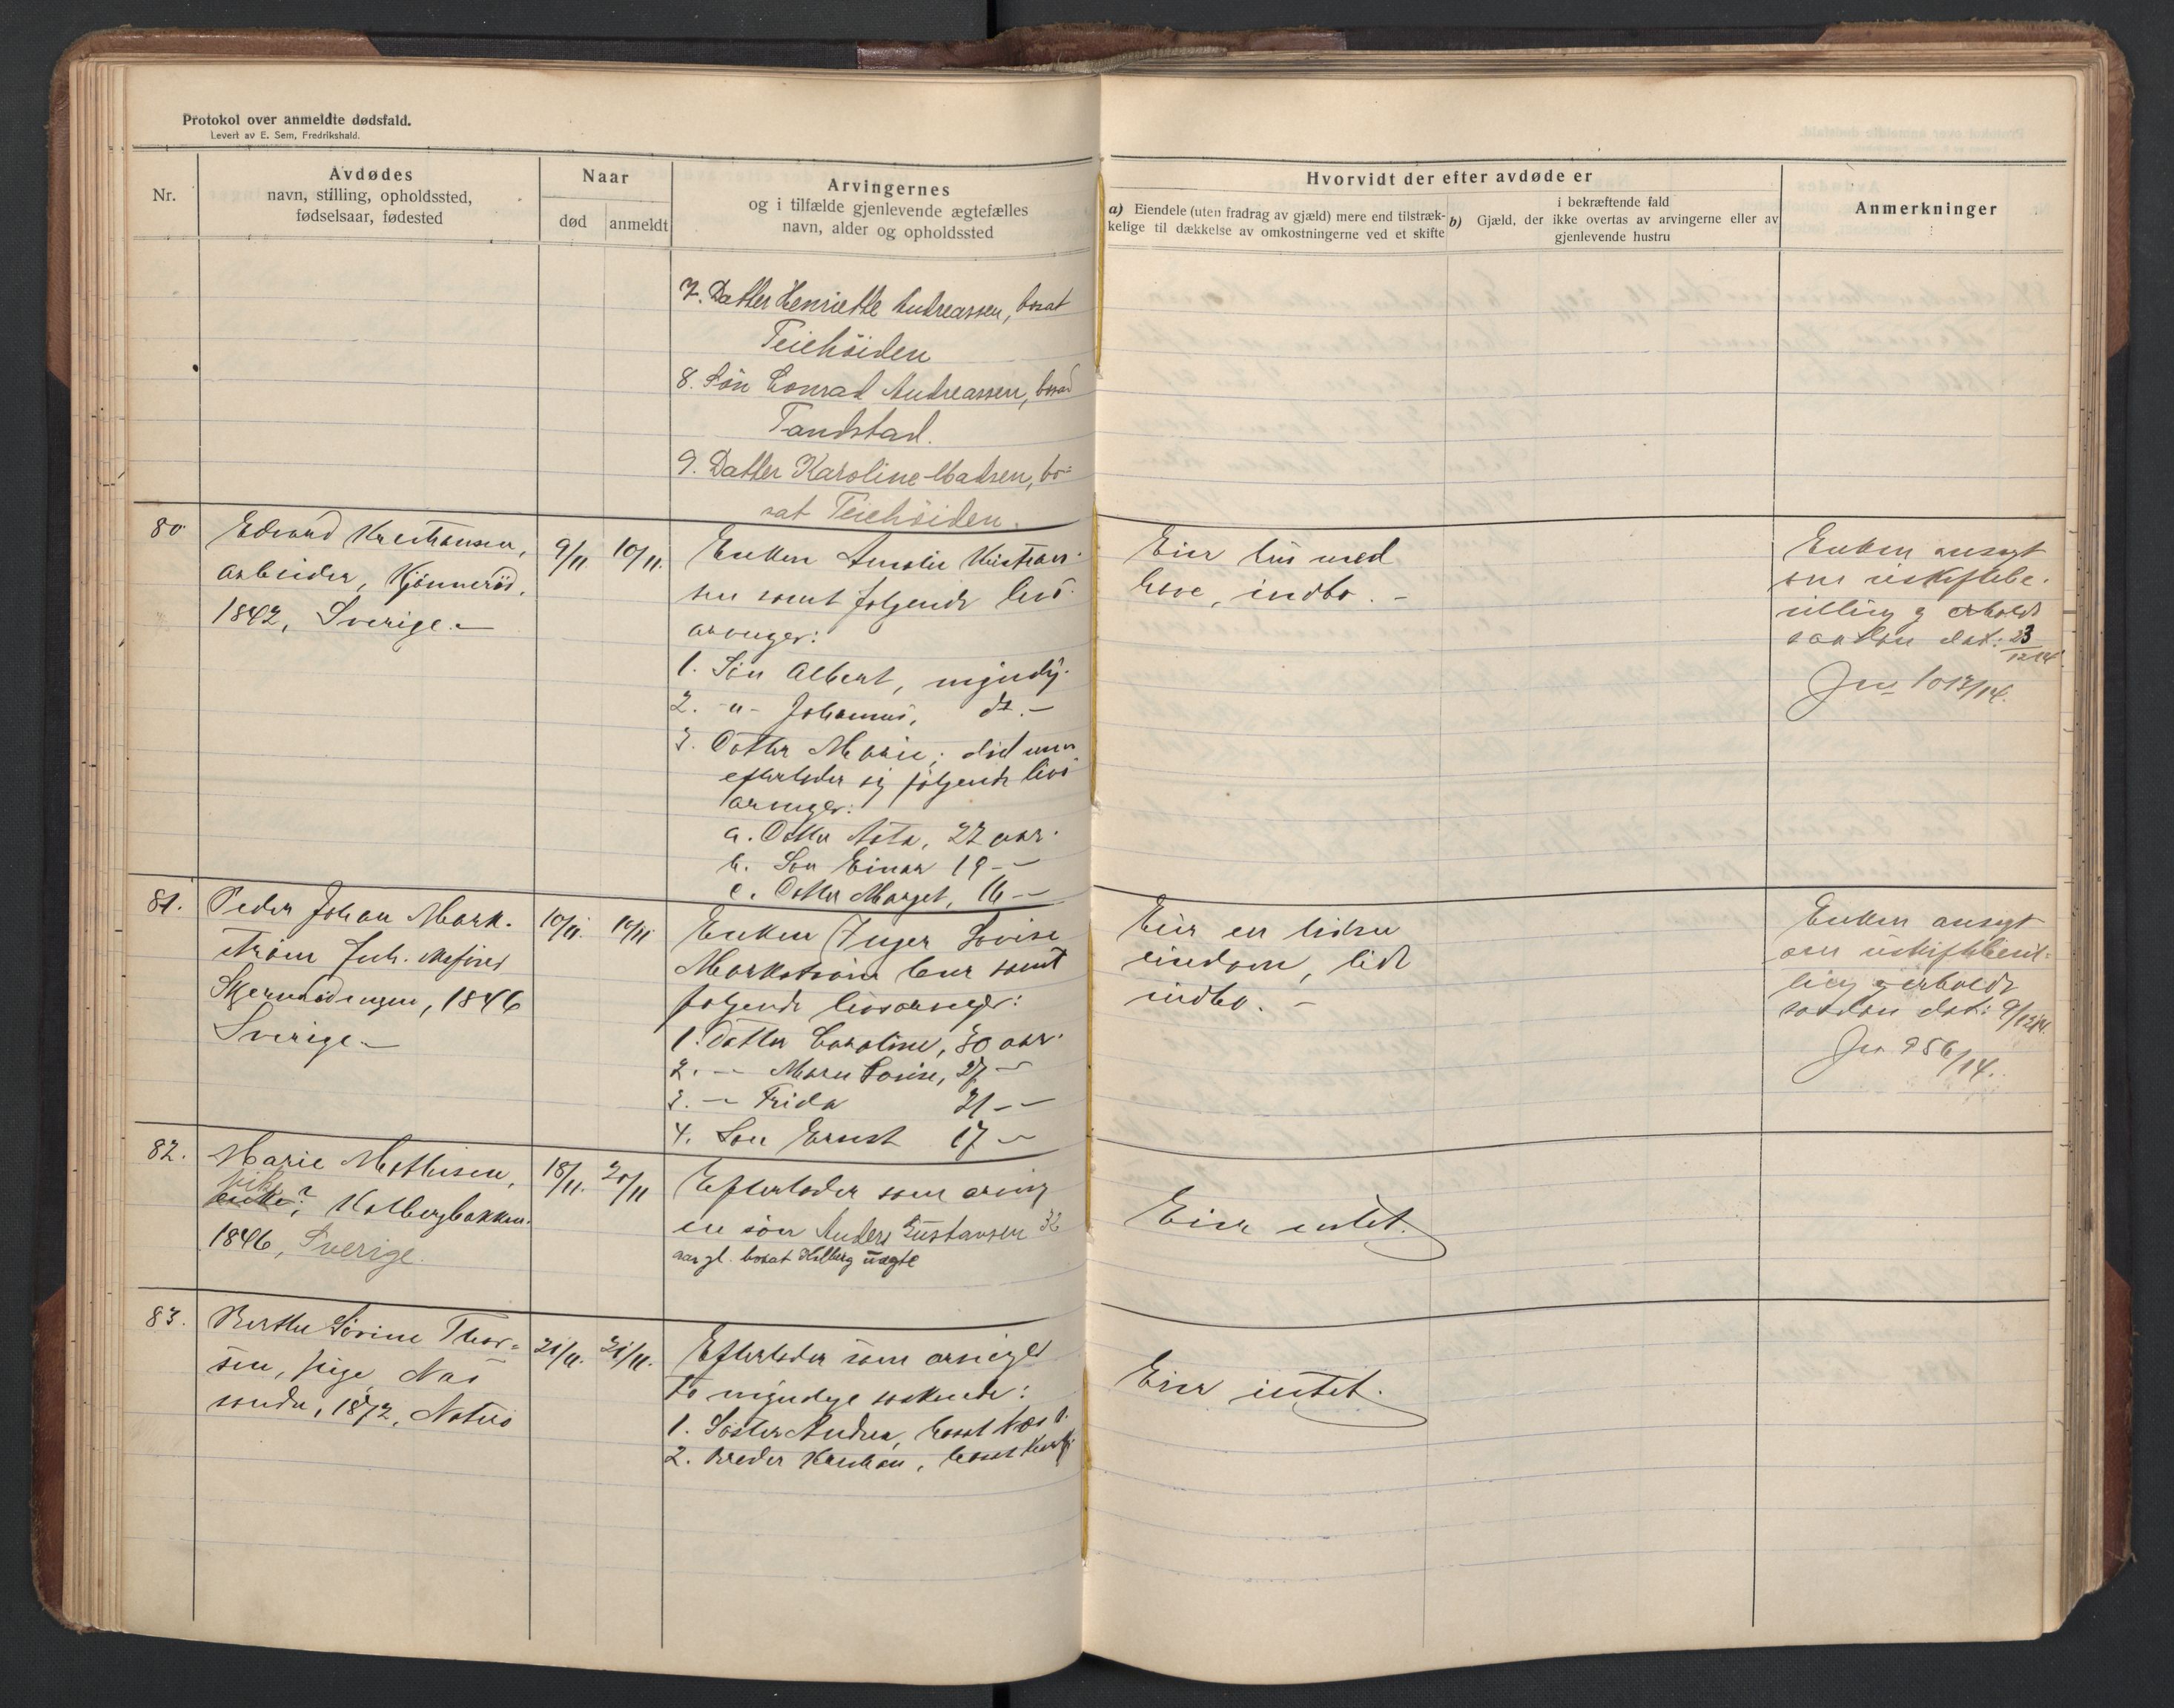 Protokol over anmeldte dødsfald.
Levert av E. Sem, Fredrikshald.
Nr.
Avdødes
navn, stilling, opholdssted,
fødselsaar, fødested
Naar
død
anmeldt
Arvingernes
og i tilfælde gjenlevende ægtefælles
navn, alder og opholdssted
Hvorvidt der efter avdøde er
a) Eiendele (uten fradrag av gjæld) mere end tilstræk-
kelige til dækkelse av omkostningerne ved et skifte
i bekræftende fald
b) Gjæld, der ikke overtas av arvingerne eller av
gjenlevende hustru
Anmerkninger
7. Datter Henriette Andreassen, bosat
Teichöiden
8. Søn Conrad Andreassen, bosat
Tandstad.
9. Datter Karoline Madsen, bo-
sat Teichöiden.
80
Edvard Kristiansen,
arbeider, Kjønnerød,
1842, Sverige.
9/11
10/11.
Enken Amalie Kristian-
sen samt følgende livs-
arvinger:
1. Søn Albert, myndig.
2. -"- Johannes, do.
3. Datter Marie, død men
efterlader sig følgende livs
arvinger:
a. Datter Asta, 22 aar.
b. Søn Einar 19 -
c. Datter Marget, 16 -
Eier hus med
have, indbo. -
Enken ansøgt
om uskiftebe-
villing og erholdt
saadan dat. 23/12 14
Jnr 1013/14.
81.
Peder Johan Mark-
strøm
1846
Sverige
10/11.
10/11
Enken Inger Lovise
Markstrøm samt
følgende livsarvinger:
1. Datter Caroline, 30 aar.
2. - Maren Lovise, 27 -
3. - Frida 21 -
4. Søn Ernst 17 -
Eier en liden
eiendom, lidt
indbo. -
Enken ansøgt
om uskiftebevil-
ling og erholdt
saadan dat: 9/12 14
Jnr 956/14.
82.
Marie Mathisen,
pike
enke?, Holbergbakken.
1846, Sverige.
18/11.
20/11
Efterlader som arving
en søn Anders Gustavsen 36
aar gl. bosat Holberg uægte
Eier intet.
83.
Berthe Sørine Thor-
sen, pige, Næs
søndre, 1872,
21/11.
21/11.
Efterlader som arvinger
to myndige søskende:
1. Søster Andrea, bosat Næs
2. Broder Kristian, bosat
Eier intet.